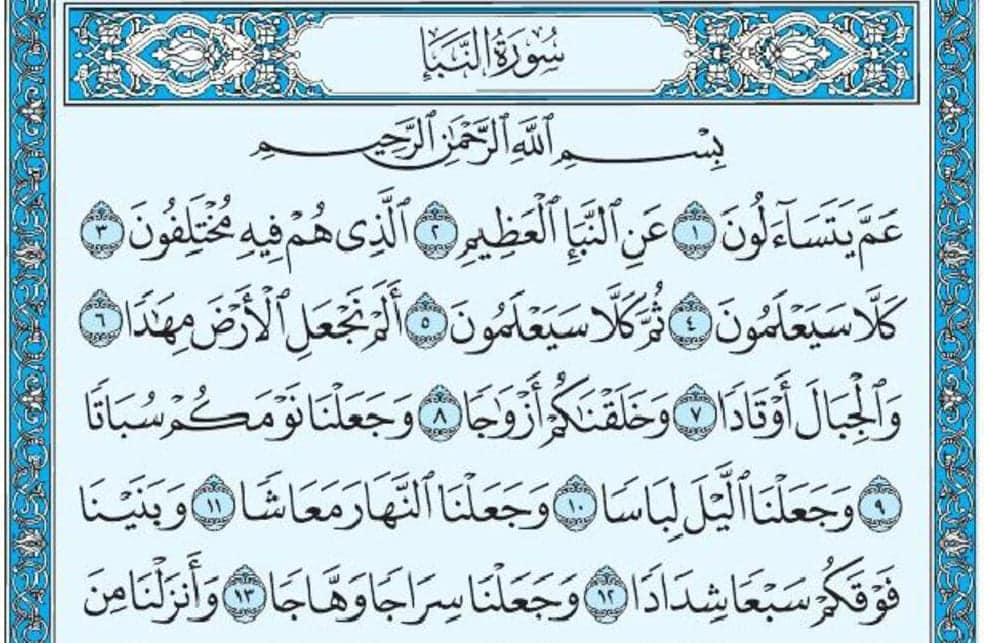 سُورَةُ النَّبَإِ
بِسْمِ ٱللَّهِ ٱلرَّحْمَٰنِ ٱلرَّحِيمِ
عَمَّ يَتَسَآءَلُونَ ١ عَنِ ٱلنَّبَإِ ٱلْعَظِيمِ ٢ ٱلَّذِى هُمْ فِيهِ مُخْتَلِفُونَ ٣
كَلَّا سَيَعْلَمُونَ ٤ ثُمَّ كَلَّا سَيَعْلَمُونَ ٥ أَلَمْ نَجْعَلِ ٱلْأَرْضَ مِهَٰدًا ٦
وَٱلْجِبَالَ أَوْتَادًا ٧ وَخَلَقْنَٰكُمْ أَزْوَٰجًا ٨ وَجَعَلْنَا نَوْمَكُمْ سُبَاتًا
٩ وَجَعَلْنَا ٱلَّيْلَ لِبَاسًا ١٠ وَجَعَلْنَا ٱلنَّهَارَ مَعَاشًا ١١ وَبَنَيْنَا
فَوْقَكُمْ سَبْعًا شِدَادًا ١٢ وَجَعَلْنَا سِرَاجًا وَهَّاجًا ١٣ وَأَنزَلْنَا مِنَ